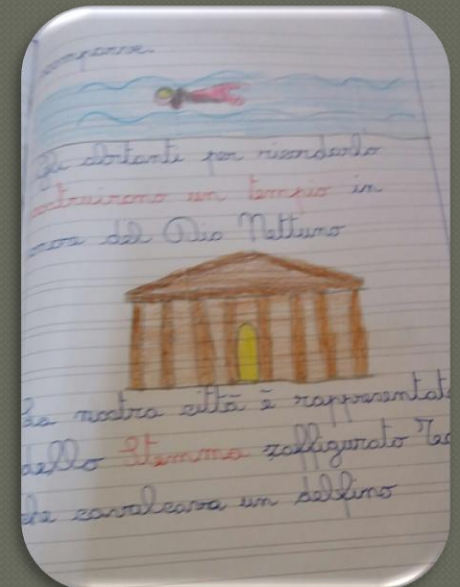 scomparve.
Gli abitanti per ricordarlo
costruirono un tempio in
onore del Dio Nettuno
La nostra città è rappresentat
dallo Stemma raffigurato
che cavalcava un delfino